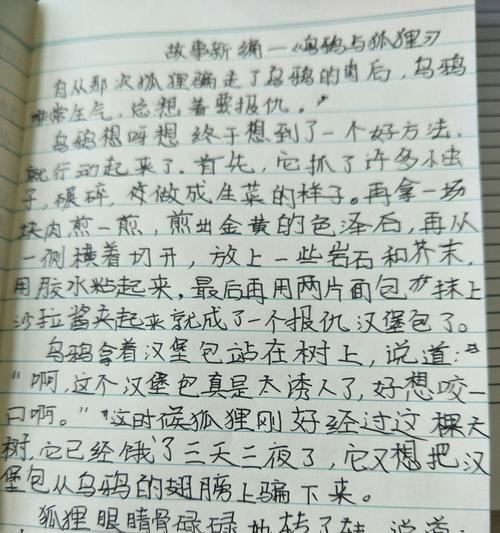 故事新编—《乌鸦与狐狸》
自从那次狐狸骗走了乌鸦的肉后，乌鸦
非常生气，总想着要报仇。
乌鸦想呀想 终于想到了一个好方法，
就行动起来了。首先，它抓了许多小虫
子，碾碎，做成生菜的样子。再拿一场
块肉煎一煎，煎出金黄的色泽后，再从
一侧横着切开，放上一些岩石和芥末，
用胶水粘起来，最后再用两片面包抹上
沙拉酱夹起来就成了一个报仇汉堡包了。
乌鸦拿着汉堡包站在树上，说道：
“啊，这个汉堡包真是太诱人了，好想咬一
口啊。”这时候狐狸刚好经过这棵大
树，它已经饿了三天三夜了，它又想把汉
堡包从乌鸦的翅膀上骗下来。
狐狸眼睛骨碌碌地转了转，说道：